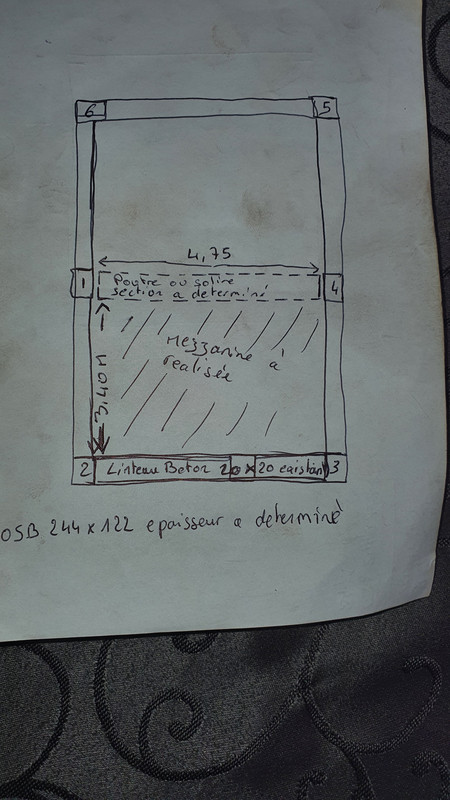 6
5
4,75
1
Poutre ou solive
section a determiné
4
Mezzanine à
realisée
3,40 m
2
Linteau Beton 20 x 20 existant
3
OSB 244 x 122 epaisseur a determiné